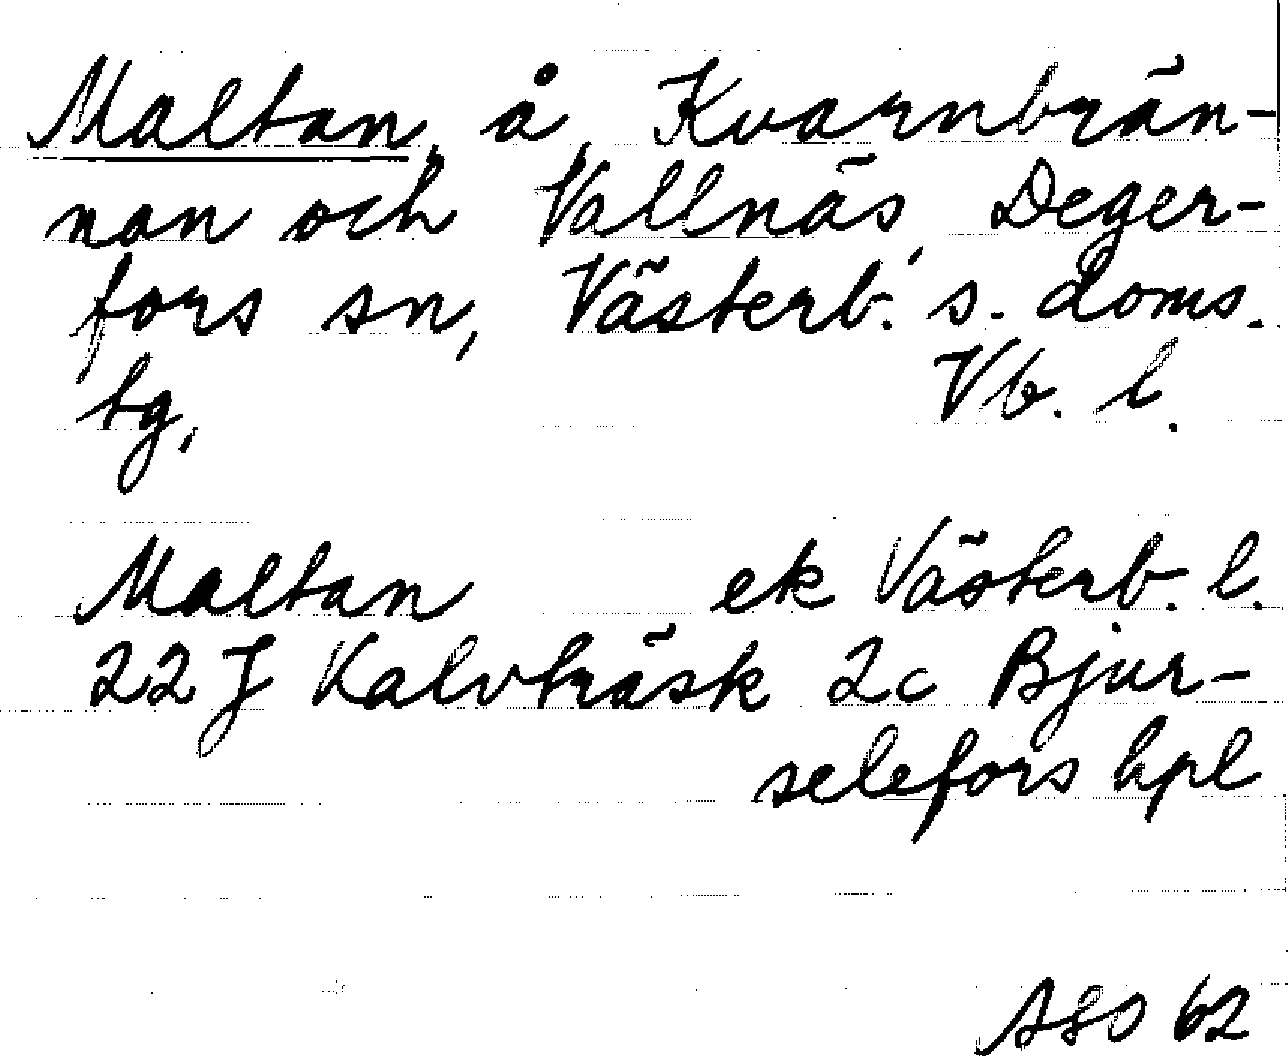 Maltan, å, Kvarnbrän-
nan och Vallnäs, Deger-
fors sn, Västerb. s. doms.
tg,
Vb. l.
Maltan ek Västerb. l.
22 J Kalvträsk 2c Bjur-
selefors hpl
ASO 62